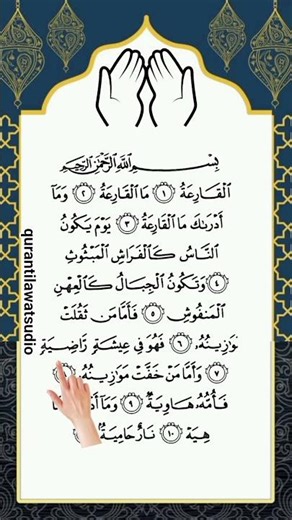 بِسْمِ اللَّهِ الرَّحْمَٰنِ الرَّحِيمِ
الْقَارِعَةُ ١ مَا الْقَارِعَةُ ٢ وَمَا
أَدْرَىٰكَ مَا الْقَارِعَةُ ٣ يَوْمَ يَكُونُ
النَّاسُ كَالْفَرَاشِ الْمَبْثُوثِ
٤ وَتَكُونُ الْجِبَالُ كَالْعِهْنِ
الْمَنْفُوشِ ٥ فَأَمَّا مَن ثَقُلَتْ
مَوَازِينُهُ ٦ فَهُوَ فِي عِيشَةٍ رَّاضِيَةٍ
٧ وَأَمَّا مَنْ خَفَّتْ مَوَازِينُهُ
فَأُمُّهُ هَاوِيَةٌ ٩ وَمَا
هِيَهْ ١٠ نَارٌ حَامِيَةٌ
qurantilawatsudio